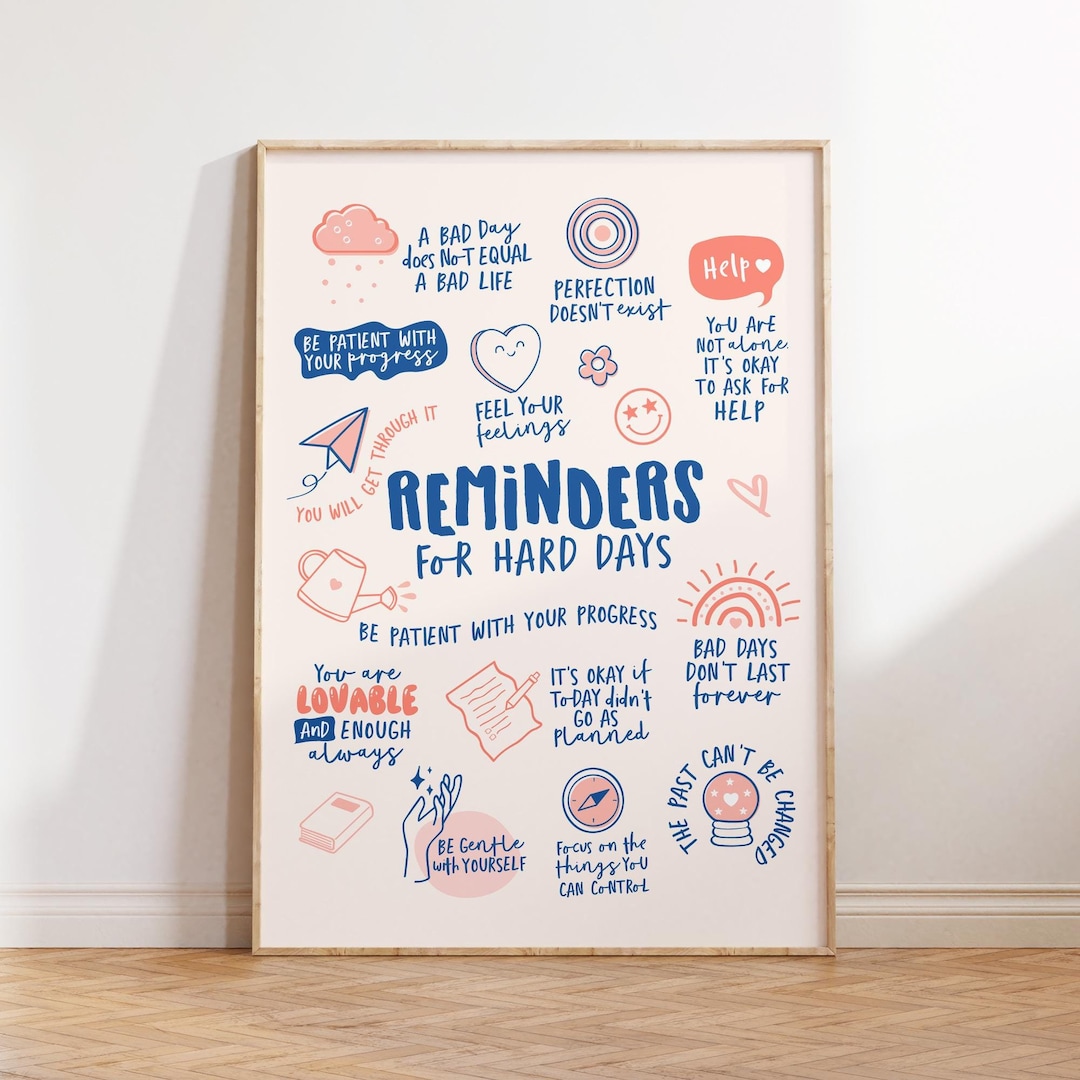 A BAD Day
does NoT EQUAL
A BAD LIFE
PERFECTION
DOESN'T exist
Help
YoU ArE
NOT alone.
IT'S OKAY
TO ASK FoR
HELP
BE PATIENT WITH
YOUR progress
FEEL YoUR
feelings
YOU WILL GET THROUGH IT
REMiNDERS
FoR HARD DAYS
BE PATIENT WITH YOUR PROGRESS
BAD DAYS
DON'T LAST
forever
You are
LOVABLE
AnD ENOUGH
always
IT'S OKAY if
ToDAY didn't
GO AS
planned
THE PAST CAN'T BE CHANGED
BE Gentle
with YOURSELF
Focus on the
things YoU
CAN CoNTRoL